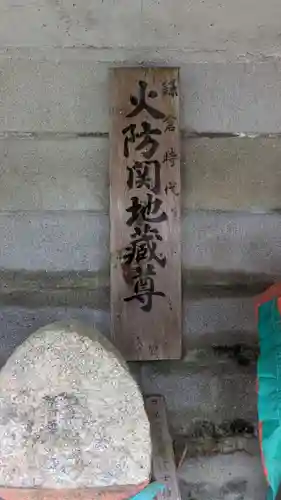 鎌倉時代
火防関地蔵尊